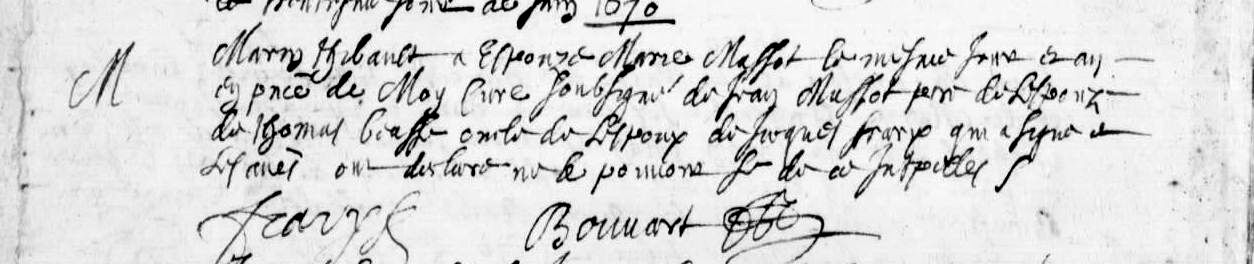 de juin 1670
M
Marin Thibault a Espouze Marie Massot le mesme jour et an
en pnce de Moy Cure soubsigné de jean Massot pere de Lespouze
de thomas beasse oncle de Lespoux de jacques qui a signe et
Les aues ont declare ne le pouuoir fe de ce Intpelles
Bouuart